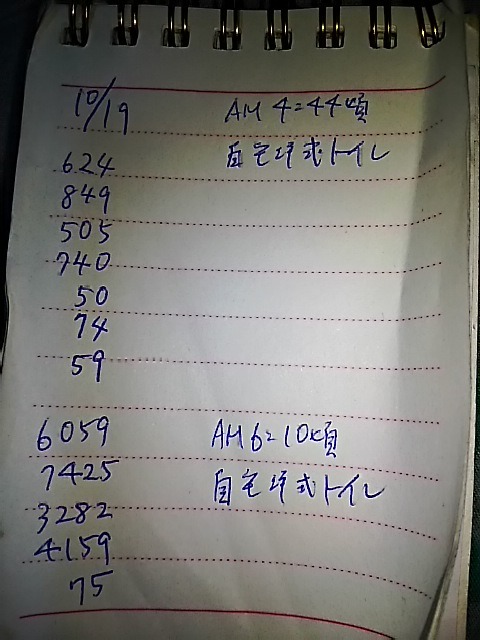 10/19 AM 4:44頃
自宅洋式トイレ
624
849
505
740
50
74
59
6059 AM 6:10頃
7425 自宅洋式トイレ
3282
4159
75